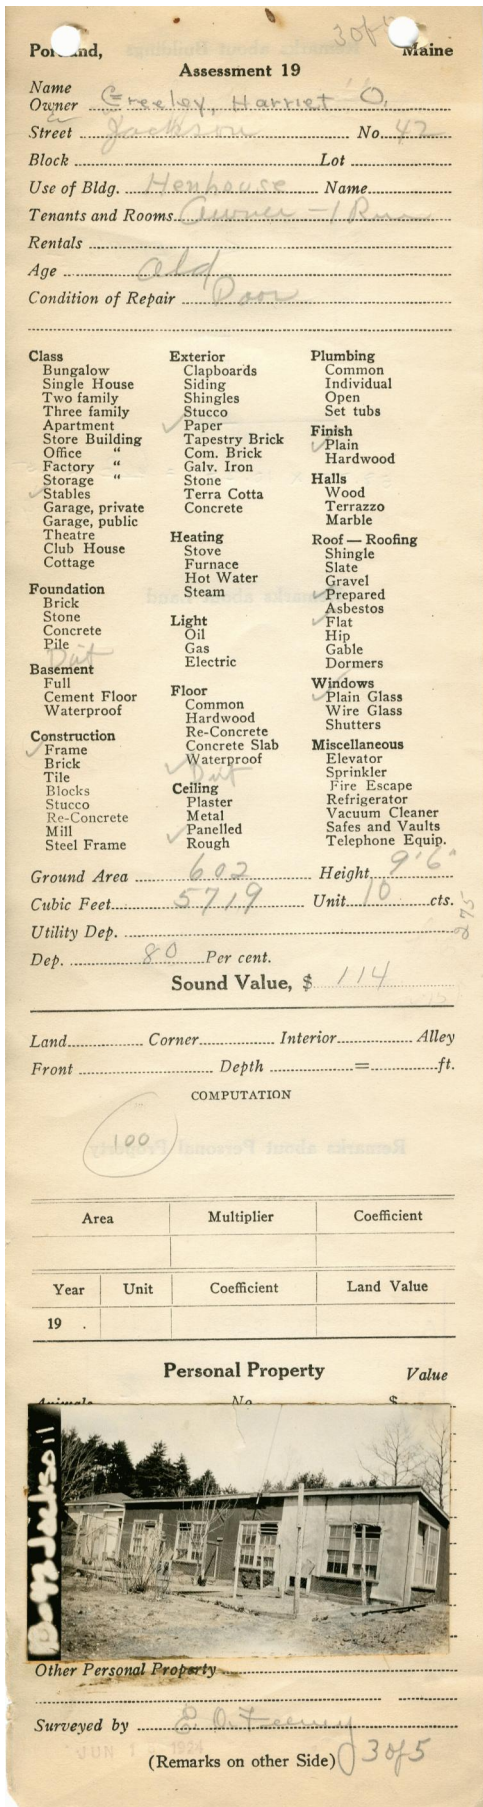 3 of
Portland, Maine
Assessment 19
Name
Owner Greeley, Harriet O.
Street Jackson No. 42
Block Lot
Use of Bldg. Henhouse Name
Tenants and Rooms Owner - 1 Room
Rentals
Age Old
Condition of Repair Poor
Class
Bungalow
Single House
Two family
Three family
Apartment
Store Building
Office "
Factory "
Storage "
✓ Stables
Garage, private
Garage, public
Theatre
Club House
Cottage
Foundation
Brick
Stone
Concrete
Pile
Dirt
Basement
Full
Cement Floor
Waterproof
Construction
✓ Frame
Brick
Tile
Blocks
Stucco
Re-Concrete
Mill
Steel Frame
Exterior
Clapboards
Siding
Shingles
Stucco
✓ Paper
Tapestry Brick
Com. Brick
Galv. Iron
Stone
Terra Cotta
Concrete
Heating
Stove
Furnace
Hot Water
Steam
Light
Oil
Gas
Electric
Floor
Common
Hardwood
Re-Concrete
Concrete Slab
✓ Waterproof
Dirt
Ceiling
Plaster
Metal
Panelled
✓ Rough
Plumbing
Common
Individual
Open
Set tubs
Finish
✓ Plain
Hardwood
Halls
Wood
Terrazzo
Marble
Roof — Roofing
Shingle
Slate
Gravel
✓ Prepared
Asbestos
✓ Flat
Hip
Gable
Dormers
Windows
✓ Plain Glass
Wire Glass
Shutters
Miscellaneous
Elevator
Sprinkler
Fire Escape
Refrigerator
Vacuum Cleaner
Safes and Vaults
Telephone Equip.
Ground Area 602 Height 9'6"
Cubic Feet 5719 Unit 10 cts.
275
Utility Dep.
Dep. 80 Per cent.
Sound Value, $ 114
Land Corner Interior Alley
Front Depth = ft.
COMPUTATION
100
Area Multiplier Coefficient
Year Unit Coefficient Land Value
19 .
Personal Property Value
Animals No. $
Jackson
Other Personal Property
Surveyed by E. O. Feeney
JUN 1 1924
(Remarks on other Side) 3 of 5